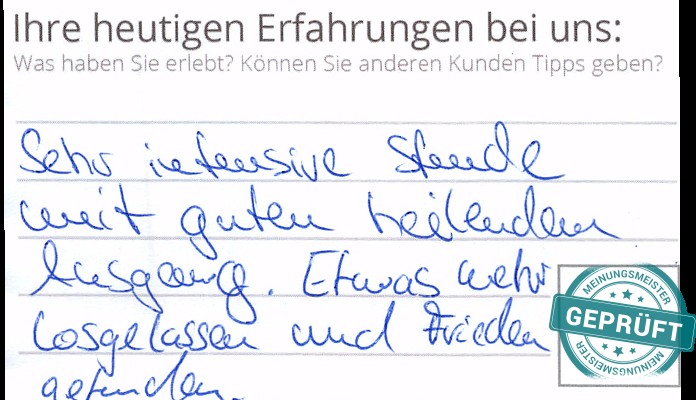 Ihre heutigen Erfahrungen bei uns:
Was haben Sie erlebt? Können Sie anderen Kunden Tipps geben?
Sehr intensive Stunde
mit guten heilendem
Ausgang. Etwas mehr
losgelassen und Frieden
gefunden.
MEINUNGSMEISTER
GEPRÜFT
MEINUNGSMEISTER